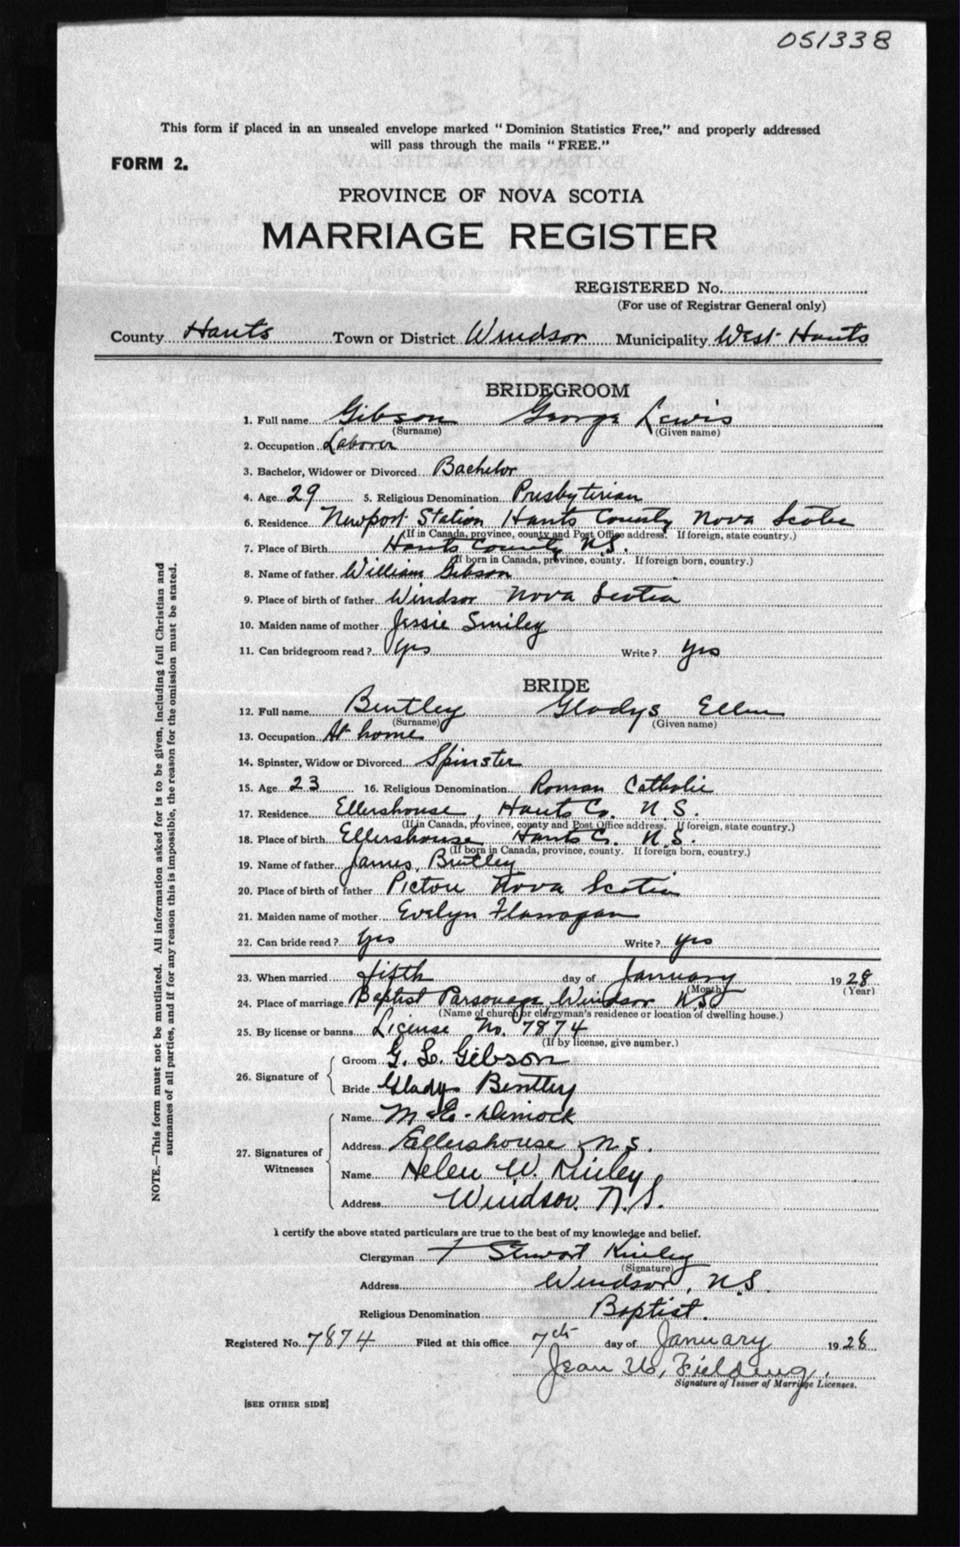 051338
This form if placed in an unsealed envelope marked "Dominion Statistics Free," and properly addressed
will pass through the mails "FREE."
FORM 2.
PROVINCE OF NOVA SCOTIA
MARRIAGE REGISTER
REGISTERED No.
(For use of Registrar General only)
County Hants Town or District Windsor Municipality West Hants
BRIDEGROOM
1. Full name Gibson George Lewis
(Surname) (Given name)
2. Occupation Laborer
3. Bachelor, Widower or Divorced Bachelor
4. Age 29 5. Religious Denomination Presbyterian
6. Residence Newport Station Hants County Nova Scotia
(If in Canada, province, county and Post Office address. If foreign, state country.)
7. Place of Birth Hants County N.S.
(If born in Canada, province, county. If foreign born, country.)
8. Name of father William Gibson
9. Place of birth of father Windsor Nova Scotia
10. Maiden name of mother Jessie Smiley
11. Can bridegroom read? Yes Write? Yes
BRIDE
12. Full name Bentley Gladys Ellen
(Surname) (Given name)
13. Occupation At home
14. Spinster, Widow or Divorced Spinster
15. Age 23 16. Religious Denomination Roman Catholic
17. Residence Ellershouse, Hants Co. N.S.
(If in Canada, province, county and Post Office address. If foreign, state country.)
18. Place of birth Ellershouse Hants C. N.S.
(If born in Canada, province, county. If foreign born, country.)
19. Name of father James Bentley
20. Place of birth of father Pictou Nova Scotia
21. Maiden name of mother Evelyn Flannagan
22. Can bride read? Yes Write? Yes
23. When married fifth day of January 1928
(Month) (Year)
24. Place of marriage Baptist Parsonage Windsor N.S
(Name of church or clergyman's residence or location of dwelling house.)
25. By license or banns License No. 7874
(If by license, give number.)
26. Signature of Groom G. L. Gibson
Bride Gladys Bentley
27. Signatures of Witnesses
Name M E. Dimock
Address Ellershouse N.S.
Name Helen W. Kinley
Address Windsor N.S.
I certify the above stated particulars are true to the best of my knowledge and belief.
Clergyman F Stewart Kinley
(Signature)
Address Windsor, N.S.
Religious Denomination Baptist.
Registered No. 7874 Filed at this office 7th day of January 1928
Jean W. Fielding.
Signature of Issuer of Marriage Licenses.
[SEE OTHER SIDE]
NOTE.—This form must not be mutilated. All information asked for is to be given, including full Christian and
surnames of all parties, and if for any reason this is impossible, the reason for the omission must be stated.